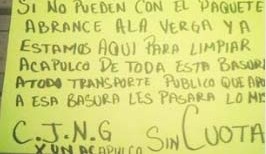 SI NO PUEDEN CON EL PAQUETE
ABRANCE ALA VERGA YA
ESTAMOS AQUI PARA LIMPIAR
ACAPULCO DE TODA ESTA BASURA
ATODO TRANSPORTE PUBLICO QUE
A ESA BASURA LES PASARA LO
C.J.N.G SIN CUOTA
X UN ACAPULCO